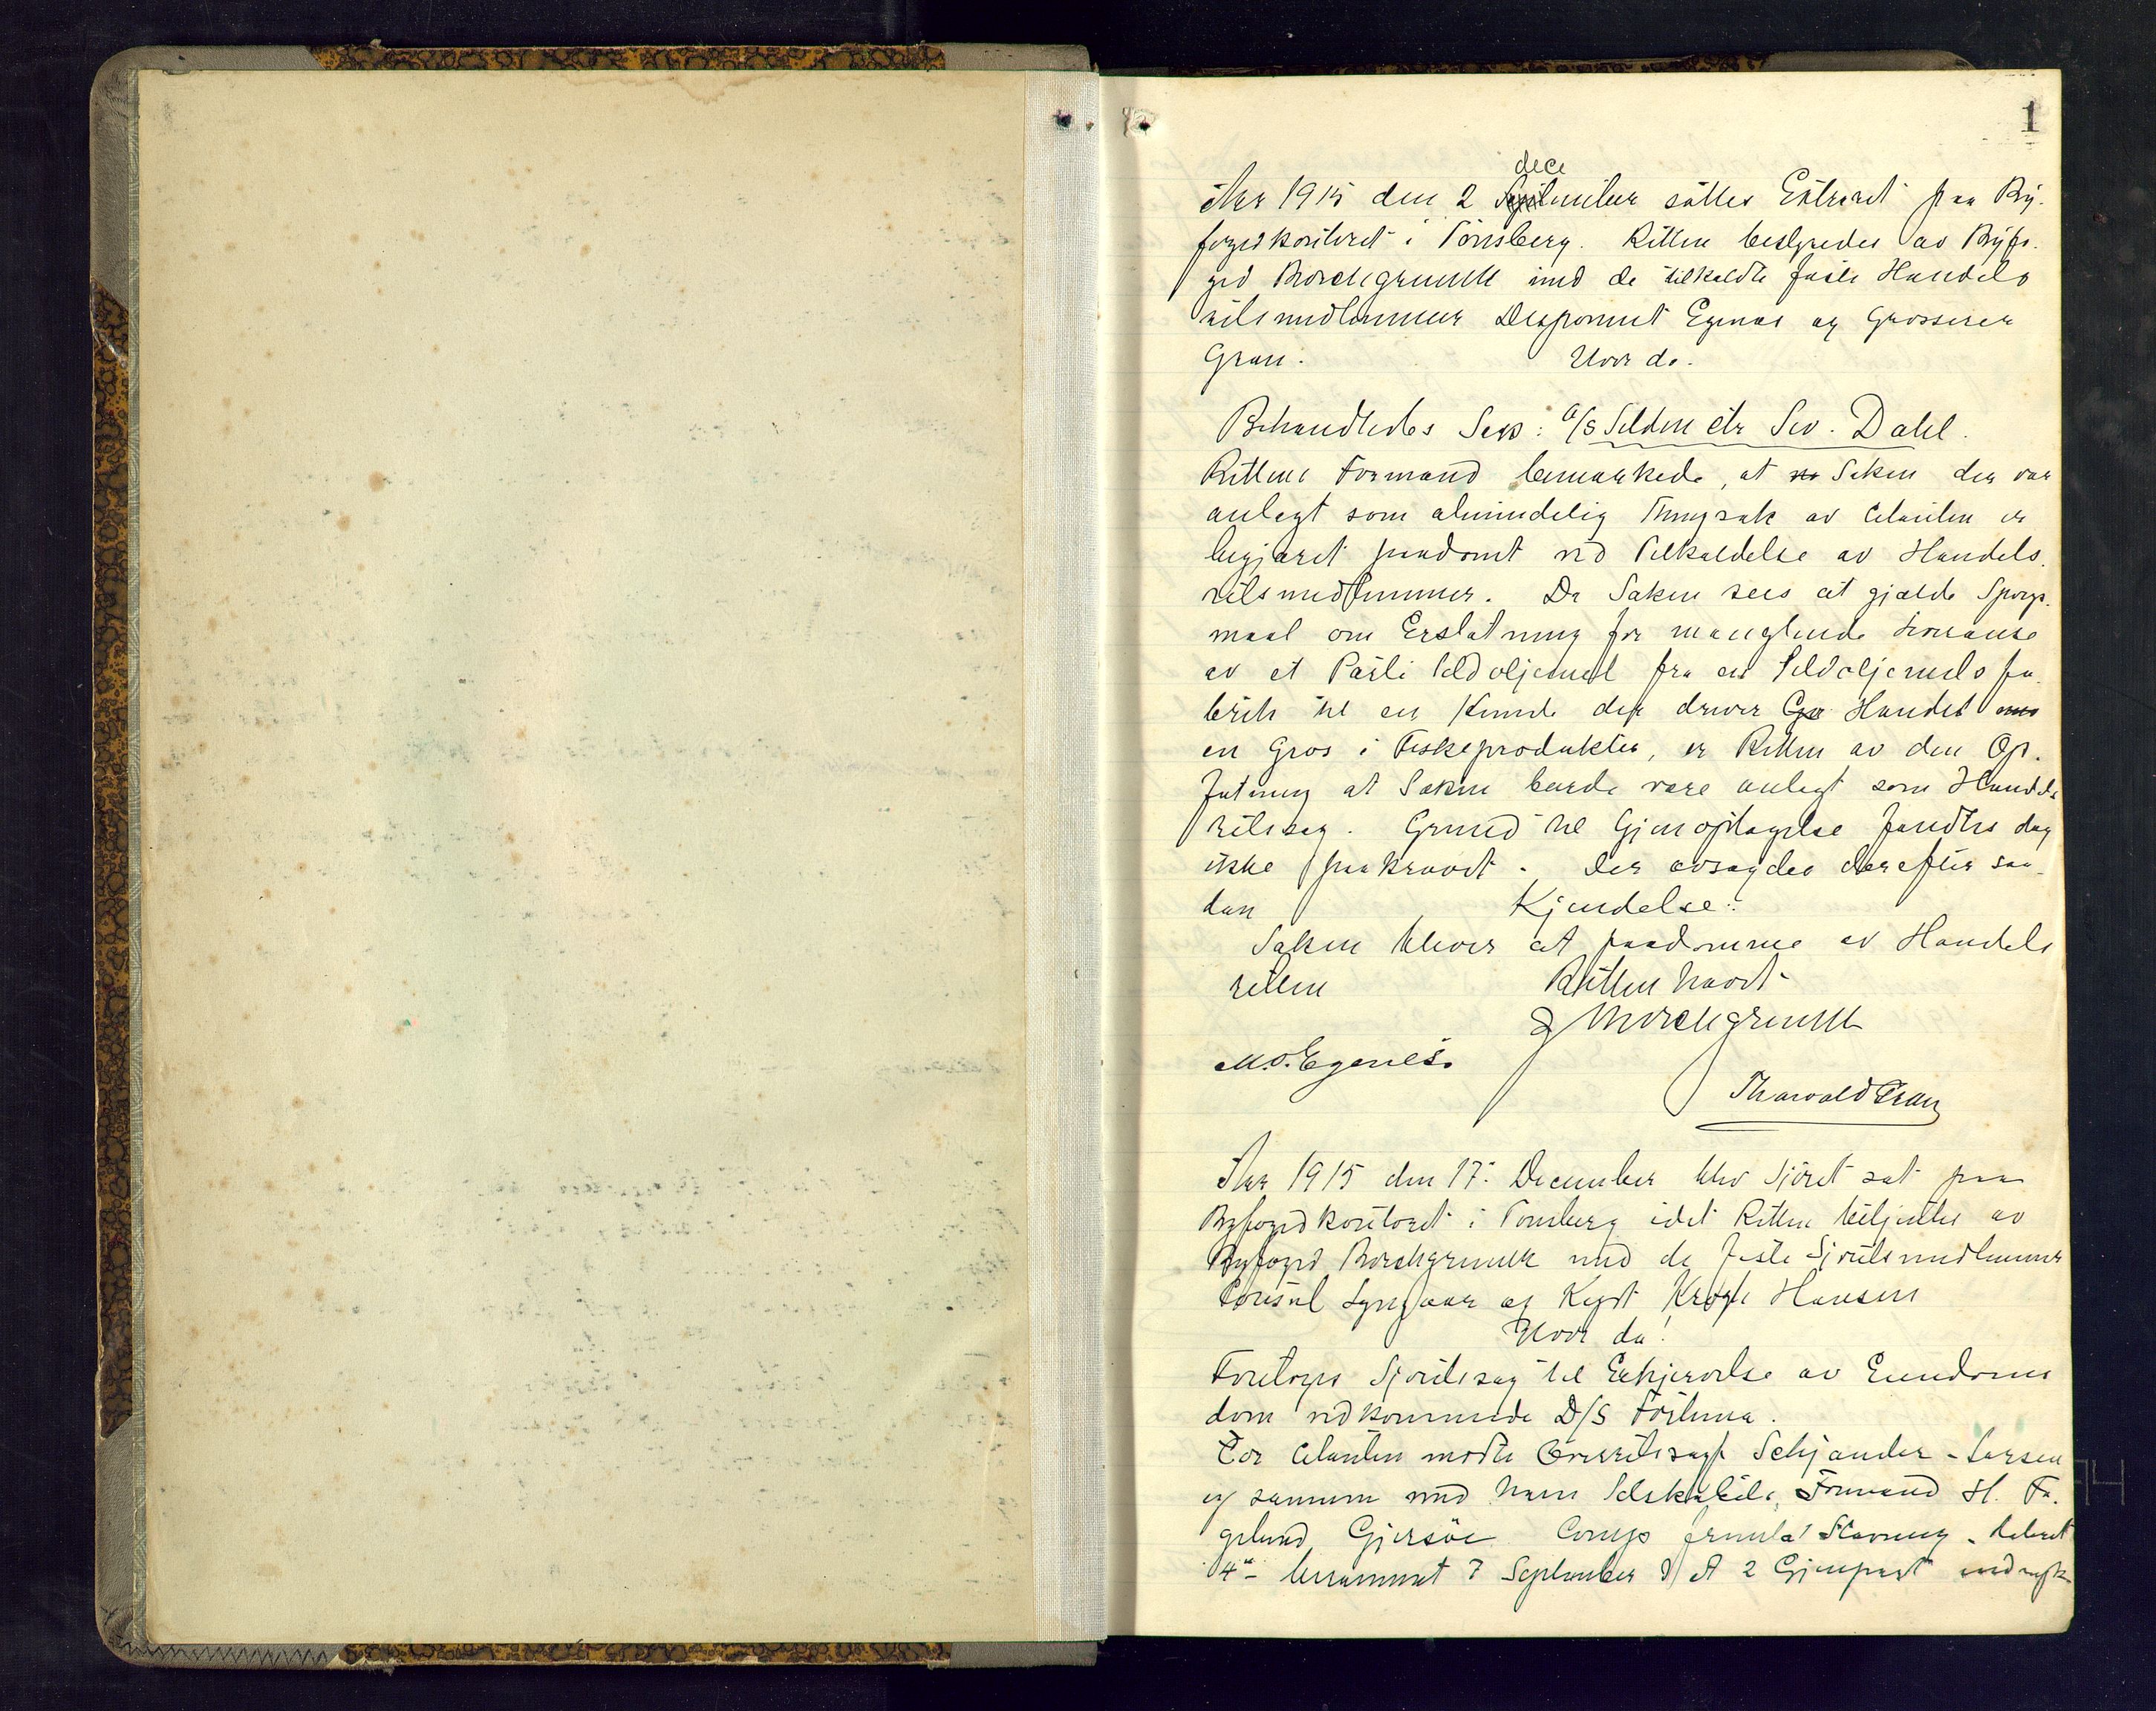 1
dece
Aar 1915 den 2 September sattes Extraret paa By-
fogedkontoret i Tönsberg. Retten bestyredes av Byfo-
ged Borchgrevink med de tilkaldte faste Handels
retsmedlemmer Disponent Egenes og Grosserer
Gran. Hvor da.
Behandledes Sag: A/S Silden ctr Sev. Dahl.
Rettens Formand bemærkede, at Saken der var
anlagt som almindelig Thingsak av Citanten er
begjæret paadømt ved Tilkaldelse av Handels-
retsmedlemmer. Da Saken sees at gjælde Spørgs-
maal om Erstatning for manglende Leveranse
av et Parti sildoljemel fra en Sildoljemels fa-
brik til en Kunde der driver Handel
en Gros i Fiskeprodukter, er Retten av den Op-
fatning at Saken burde være anlagt som Handels
retssag. Grund til Gjenoptagelse fandtes dog
ikke paakrævet. Der avsagdes derefter saa-
dan Kjendelse:
Saken bliver at paadømme av Handels
retten Retten hævet
J Borchgrevink
M.O. Egenes.
Tharvald Gran
Aar 1915 den 17. December blev Sjöret sat paa
Byfogedkontoret i Tönsberg idet Retten betjentes av
Byfoged Borchgrevink med de faste Sjöretsmedlemmer
Consul Lyngaas og Kapt Krogh Hansen
Hvor da:
Foretoges Sjøretssag til Erhvervelse av Eiendoms
dom vedkommende D/S Fortuna.
For Citanten mødte Overretssagf Schjander-Larsen
og sammen med ham Selskabets Formand H. Fa-
gerlund, Gjersöe Comp fremla! Stævning - dateret
4de berammet 7 September d A 2 Gjenpart indryk-